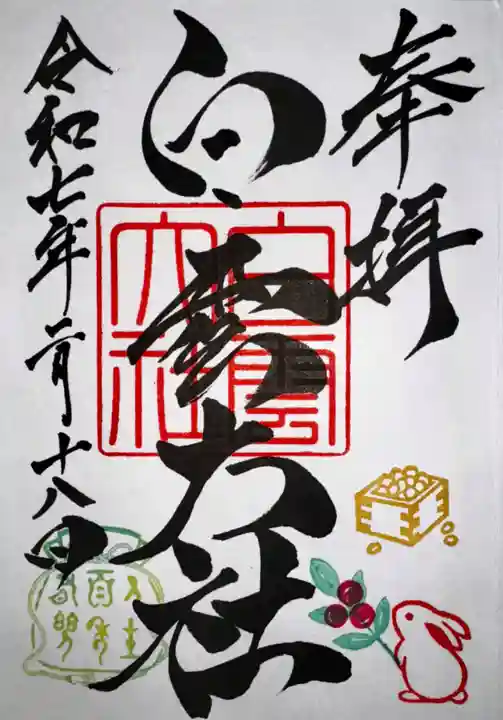 奉拝
白雲大社
白雲大社
令和七年二月十八日